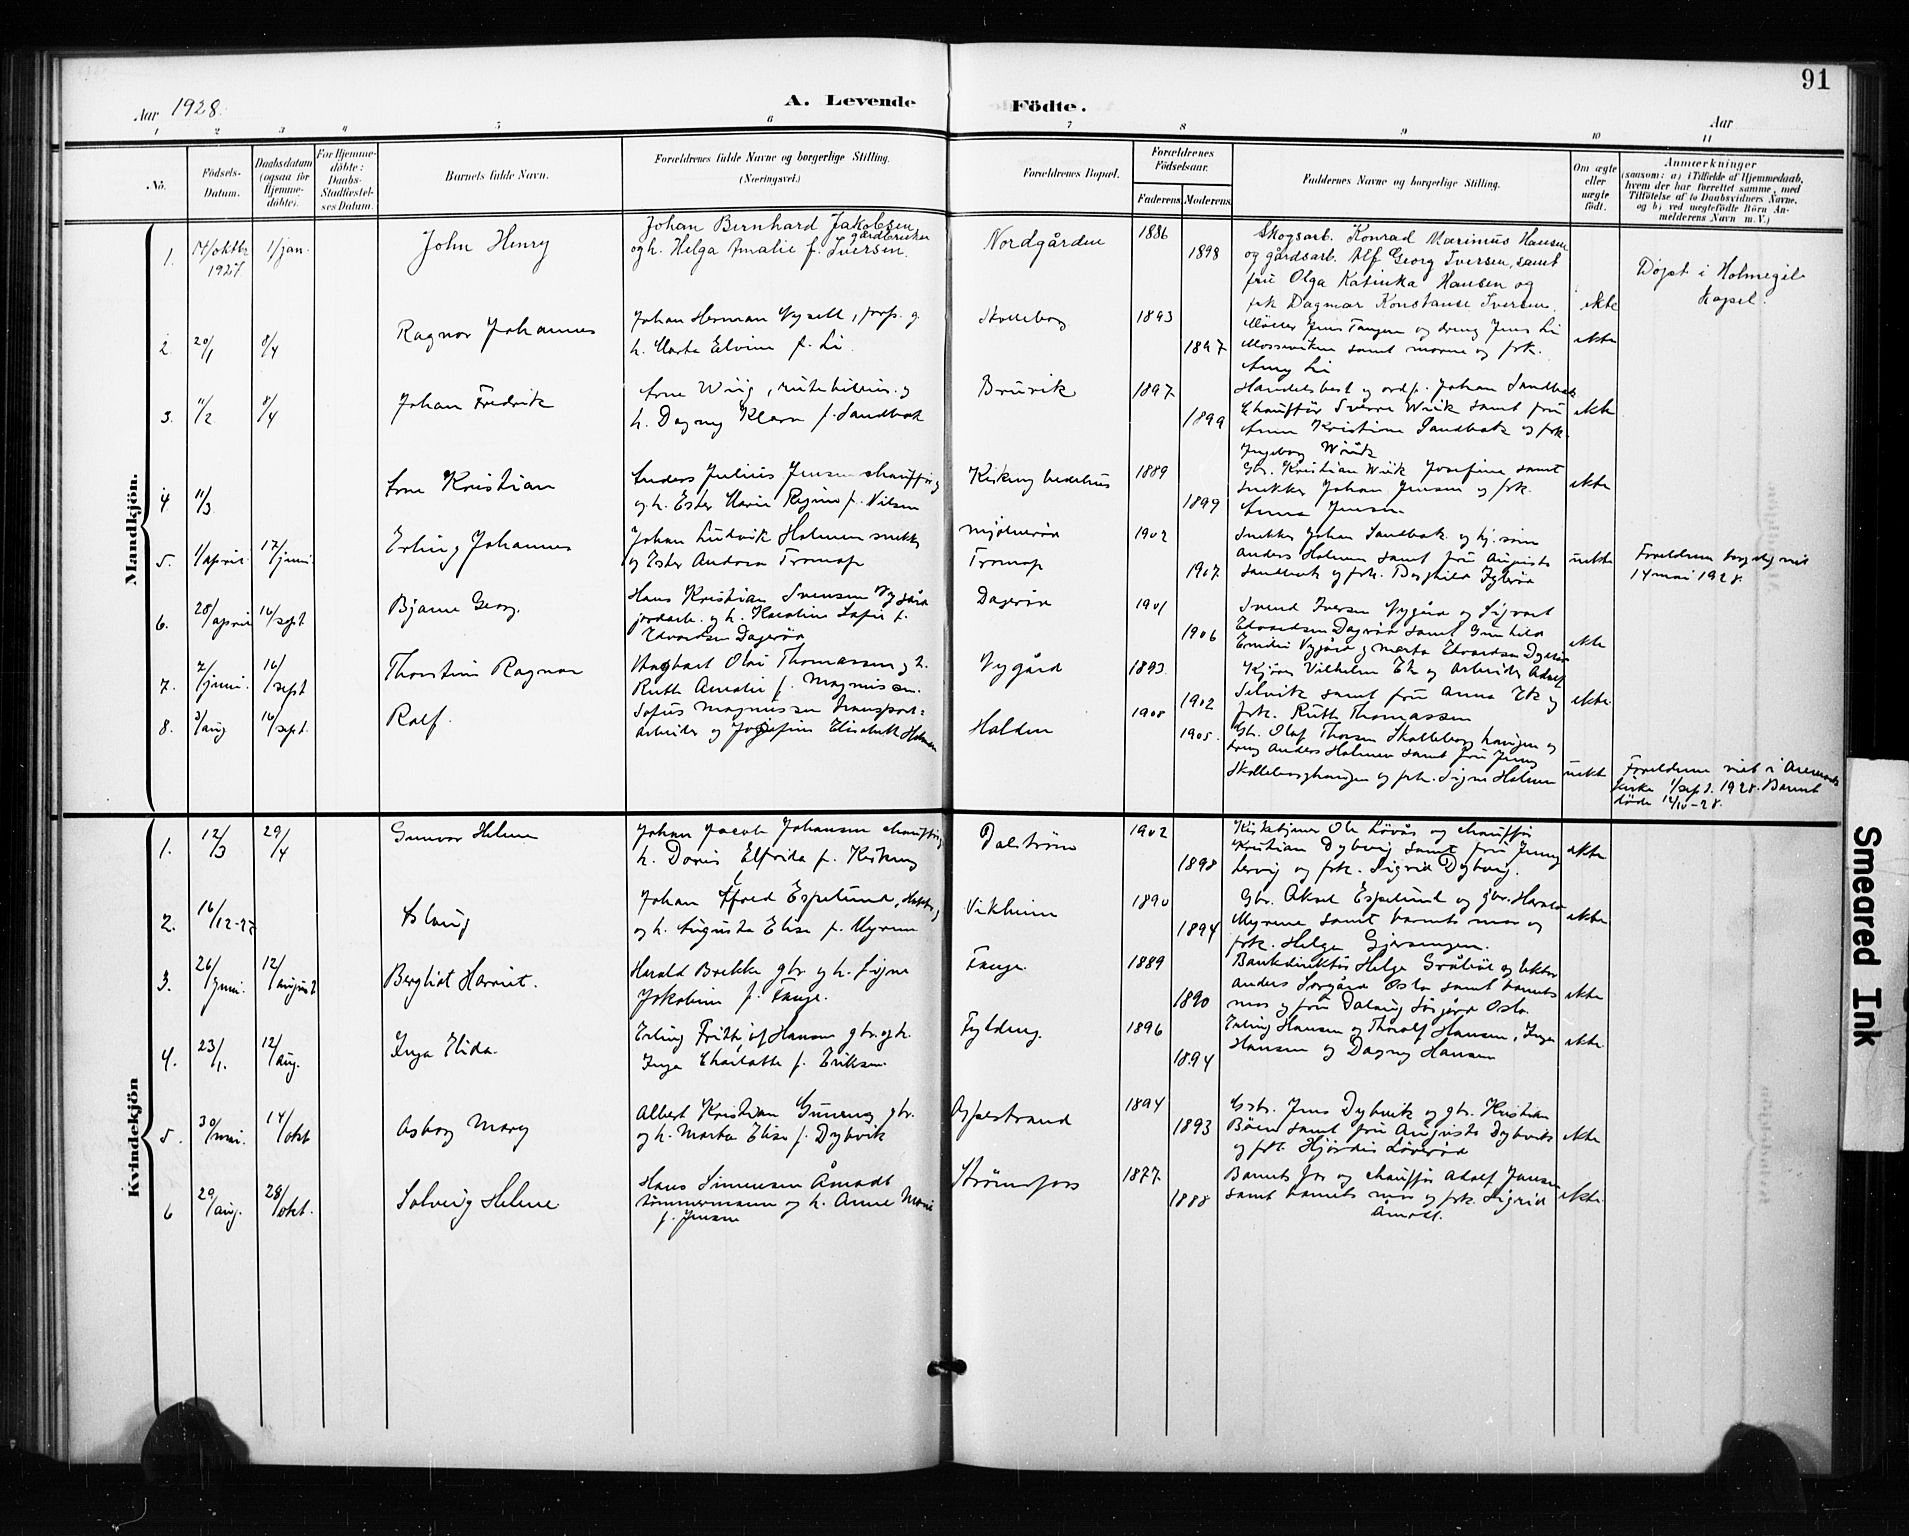 91
Aar 1928.
A. Levende Födte.
Aar
1 2 3 4 5 6 7 8 9 10 11
No.
Födsels-Datum.
Daabsdatum (ogsaa for Hjemmedöbte).
For Hjemmedöbte: Daabs-Stadfæstelses Datum.
Barnets fulde Navn.
Forældrenes fulde Navne og borgerlige Stilling. (Næringsvei.)
Forældrenes Bopæl.
Forældrenes Födselsaar.
Faderens Moderens
Faddernes Navne og borgerlige Stilling.
Om ægte eller uægte födt.
Anmærkninger
(saasom: a) i Tilfælde af Hjemmedaab,
hvem der har forrettet samme, med
Tilföielse af to Daabsvidners Navne,
og b) ved uægtefödte Börn An-
melderens Navn m. V.)
Mandkjön.
1. 14/oktbr 1927 1/jan.
John Henry
Johan Bernhard Jakobsen
gårdbruker
og h. Helga Amalie f. Iversen.
Nordgården
1886
1898
Skogsarb. Konrad Marinius Hansen
og gårdsarb. Alf Georg Iversen, samt
frue Olga Katinka Hansen og
frk Dagmar Konstanse Iversen.
ekte
Døpt i Holmegil
kapel.
2. 20/1 8/4
Ragnar Johannes
Johan Herman Nysett, forp. og
h. Marta Elvine f. Li.
Skolleborg
1893
1897
Møller Jens Tangen og dreng Jens Li
Mosseviken samt morne og frk.
Amy Li
ekte
3. 11/2 8/4
Johan Fredrik
Arne Wiig, rutebileier og
h. Dagny Klara f. Sandbak
Bruvik
1897
1899
Handelsbest og ordf. Johan Sandbak
Chauffør Sverre Wiik samt fru
Anna Kristine Sandbak og frk.
Ingeborg Wiik
ekte
4 11/3
Arne Kristian
Anders Julius Jensen chauffør og
og h. Ester Marie Regine f. Nilsen
Kirkeng bedehus
1889
1899
Gbr. Kristian Wiik Josefine samt
snekker Johan Jensen og frk.
Anna Jensen
ekte
5. 1/april 17/juni.
Erling Johannes
Johan Ludvik Holmen snekker
og Ester Andrea Tromop
Tromop
1902
1907.
Snekker Johan Sandbak og hj. søn
Anders Holmen samt fru Augusta
Sandbak og frk. Borghild
uekte
Foreldrene borgerlig viet
14 mai 1928.
6. 28/april 16/sept
Bjarne Georg.
Hans Kristian Svensen Nygård
jordarb. og h. Karoline Sofie f.
Edvardsen Dagerød
Dagerød
1901
1906
Svend Iversen Nygård og Sigvart
Edvardsen Dagerød samt Gunhild
Emilie Nygård og Marta Edvardsen Dagerød
ekte
7. 7/juni. 16/sept
Thorstein Ragnar
Olai Thomassen og h.
Ruth Amalie f. Magnussen.
Nygård
1893.
1902
Kjører Vilhelm Ek og arbeider Adolf
Selvik samt fru Anna Ek og
frk. Ruth Thomassen
ekte
8. 3/aug 16/sept.
Rolf.
Sofus Magnussen transport-
arbeider og Josefine Elisabeth Holmen
Halden
1908
1905.
Gbr. Olaf Thorsen Skolleborg haugen og
dreng Anders Holmen samt fru Jenny
Skolleborghaugen og frk. Signe Holmen
uekte
Foreldrene viet i Aremark
kirke 1/sept. 1928. Barnet
døde 14/10-28.
Kvindekjön
1. 12/3 29/4
Gunvor Helene
Johan Jacob Johansen chauffør og
h. Doris Elfrida f. Kirkeng
Dalstrøm
1902
1898
Kirketjener Ole Løvås og chauffør
Kristian Dybvig samt fru Jenny
Lervig og frk. Sigrid Dybvig.
ekte
2. 16/12-27
Aslaug
Johan Alfred Espelund,
og h. Augusta Elise f. Myrene
Vikheim
1890
1894
Gbr. Aksel Espelund og gbr. Harald
Myrene samt barnets mor og
frk. Helga Gjersengen.
ekte
3. 26/juni. 12/august
Bergliot Harriet.
Harald Brekke gbr og h. Signe
Jakobine f. Tange.
Tange.
1889
1890
Bankdirektør Helge Gråbøl og lektor
Anders Sørgård Oslo samt barnets
mor og fru Dalaug Sørgård Oslo.
ekte
4. 23/1. 12/aug.
Inga Elida.
Erling Frithjof Hansen gbr. og h.
Inga Charlotte f. Eriksen.
Fylding.
1896
1894
Erling Hansen og Thoralf Hansen, Inga
Hansen og Dagny Hansen
ekte.
5. 30/mai. 14/okt
Asborg Mary
Albert Kristian Guneng gbr.
og h. Marta Elise f. Dybvik
Aspestrand
1894
1893
Gbr. Jens Dybvik og gbr. Kristian
Bøen samt fru Augusta Dybvik
og frk. Hjørdis Løverød
ekte
6 29/aug. 28/okt.
Solveig Helene
Hans Simensen Åmodt
tømmermann og h. Anne Marie
f. Jensen
Strømsfoss
1877
1888
Barnets far og chauffør Adolf Jansen
samt barnets mor og frk. Sigrid
Åmodt.
ekte.
Smeared Ink